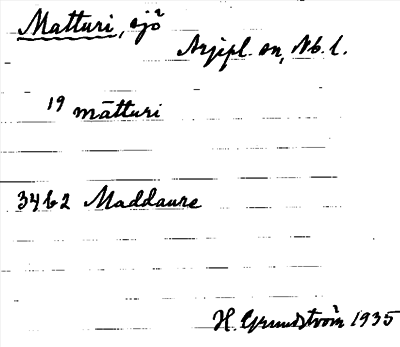 Matturi, sjö
Arjepl. sn, Nb. l.
19 mātturi
34 b 2 Maddaure
H. Grundström 1935